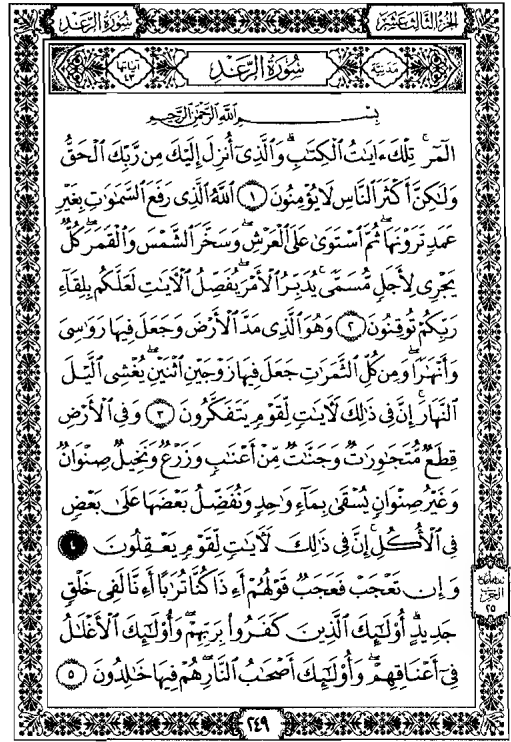 سُورَةُ الرَّعْدِ الجُزْءُ الثَّالِثَ عَشَرَ
مَدَنِيَّة سُورَةُ الرَّعْدِ آيَاتُهَا ٤٣
بِسْمِ اللَّهِ الرَّحْمَٰنِ الرَّحِيمِ
الٓمٓرۚ تِلْكَ ءَايَٰتُ ٱلْكِتَٰبِۗ وَٱلَّذِىٓ أُنزِلَ إِلَيْكَ مِن رَّبِّكَ ٱلْحَقُّ
وَلَٰكِنَّ أَكْثَرَ ٱلنَّاسِ لَا يُؤْمِنُونَ ١ ٱللَّهُ ٱلَّذِى رَفَعَ ٱلسَّمَٰوَٰتِ بِغَيْرِ
عَمَدٍ تَرَوْنَهَاۖ ثُمَّ ٱسْتَوَىٰ عَلَى ٱلْعَرْشِۖ وَسَخَّرَ ٱلشَّمْسَ وَٱلْقَمَرَۖ كُلٌّ
يَجْرِى لِأَجَلٍ مُّسَمًّىۚ يُدَبِّرُ ٱلْأَمْرَ يُفَصِّلُ ٱلْءَايَٰتِ لَعَلَّكُم بِلِقَآءِ
رَبِّكُمْ تُوقِنُونَ ٢ وَهُوَ ٱلَّذِى مَدَّ ٱلْأَرْضَ وَجَعَلَ فِيهَا رَوَٰسِىَ
وَأَنْهَٰرًاۖ وَمِن كُلِّ ٱلثَّمَرَٰتِ جَعَلَ فِيهَا زَوْجَيْنِ ٱثْنَيْنِۖ يُغْشِى ٱلَّيْلَ
ٱلنَّهَارَۚ إِنَّ فِى ذَٰلِكَ لَءَايَٰتٍ لِّقَوْمٍ يَتَفَكَّرُونَ ٣ وَفِى ٱلْأَرْضِ
قِطَعٌ مُّتَجَٰوِرَٰتٌ وَجَنَّٰتٌ مِّنْ أَعْنَٰبٍ وَزَرْعٌ وَنَخِيلٌ صِنْوَانٌ
وَغَيْرُ صِنْوَانٍ يُسْقَىٰ بِمَآءٍ وَٰحِدٍ وَنُفَضِّلُ بَعْضَهَا عَلَىٰ بَعْضٍ
فِى ٱلْأُكُلِۚ إِنَّ فِى ذَٰلِكَ لَءَايَٰتٍ لِّقَوْمٍ يَعْقِلُونَ ٤
وَإِن تَعْجَبْ فَعَجَبٌ قَوْلُهُمْ أَءِذَا كُنَّا تُرَٰبًا أَءِنَّا لَفِى خَلْقٍ
جَدِيدٍۗ أُو۟لَٰٓئِكَ ٱلَّذِينَ كَفَرُوا۟ بِرَبِّهِمْۖ وَأُو۟لَٰٓئِكَ ٱلْأَغْلَٰلُ
فِىٓ أَعْنَاقِهِمْۖ وَأُو۟لَٰٓئِكَ أَصْحَٰبُ ٱلنَّارِۖ هُمْ فِيهَا خَٰلِدُونَ ٥
الحزب
٢٥
٢٤٩